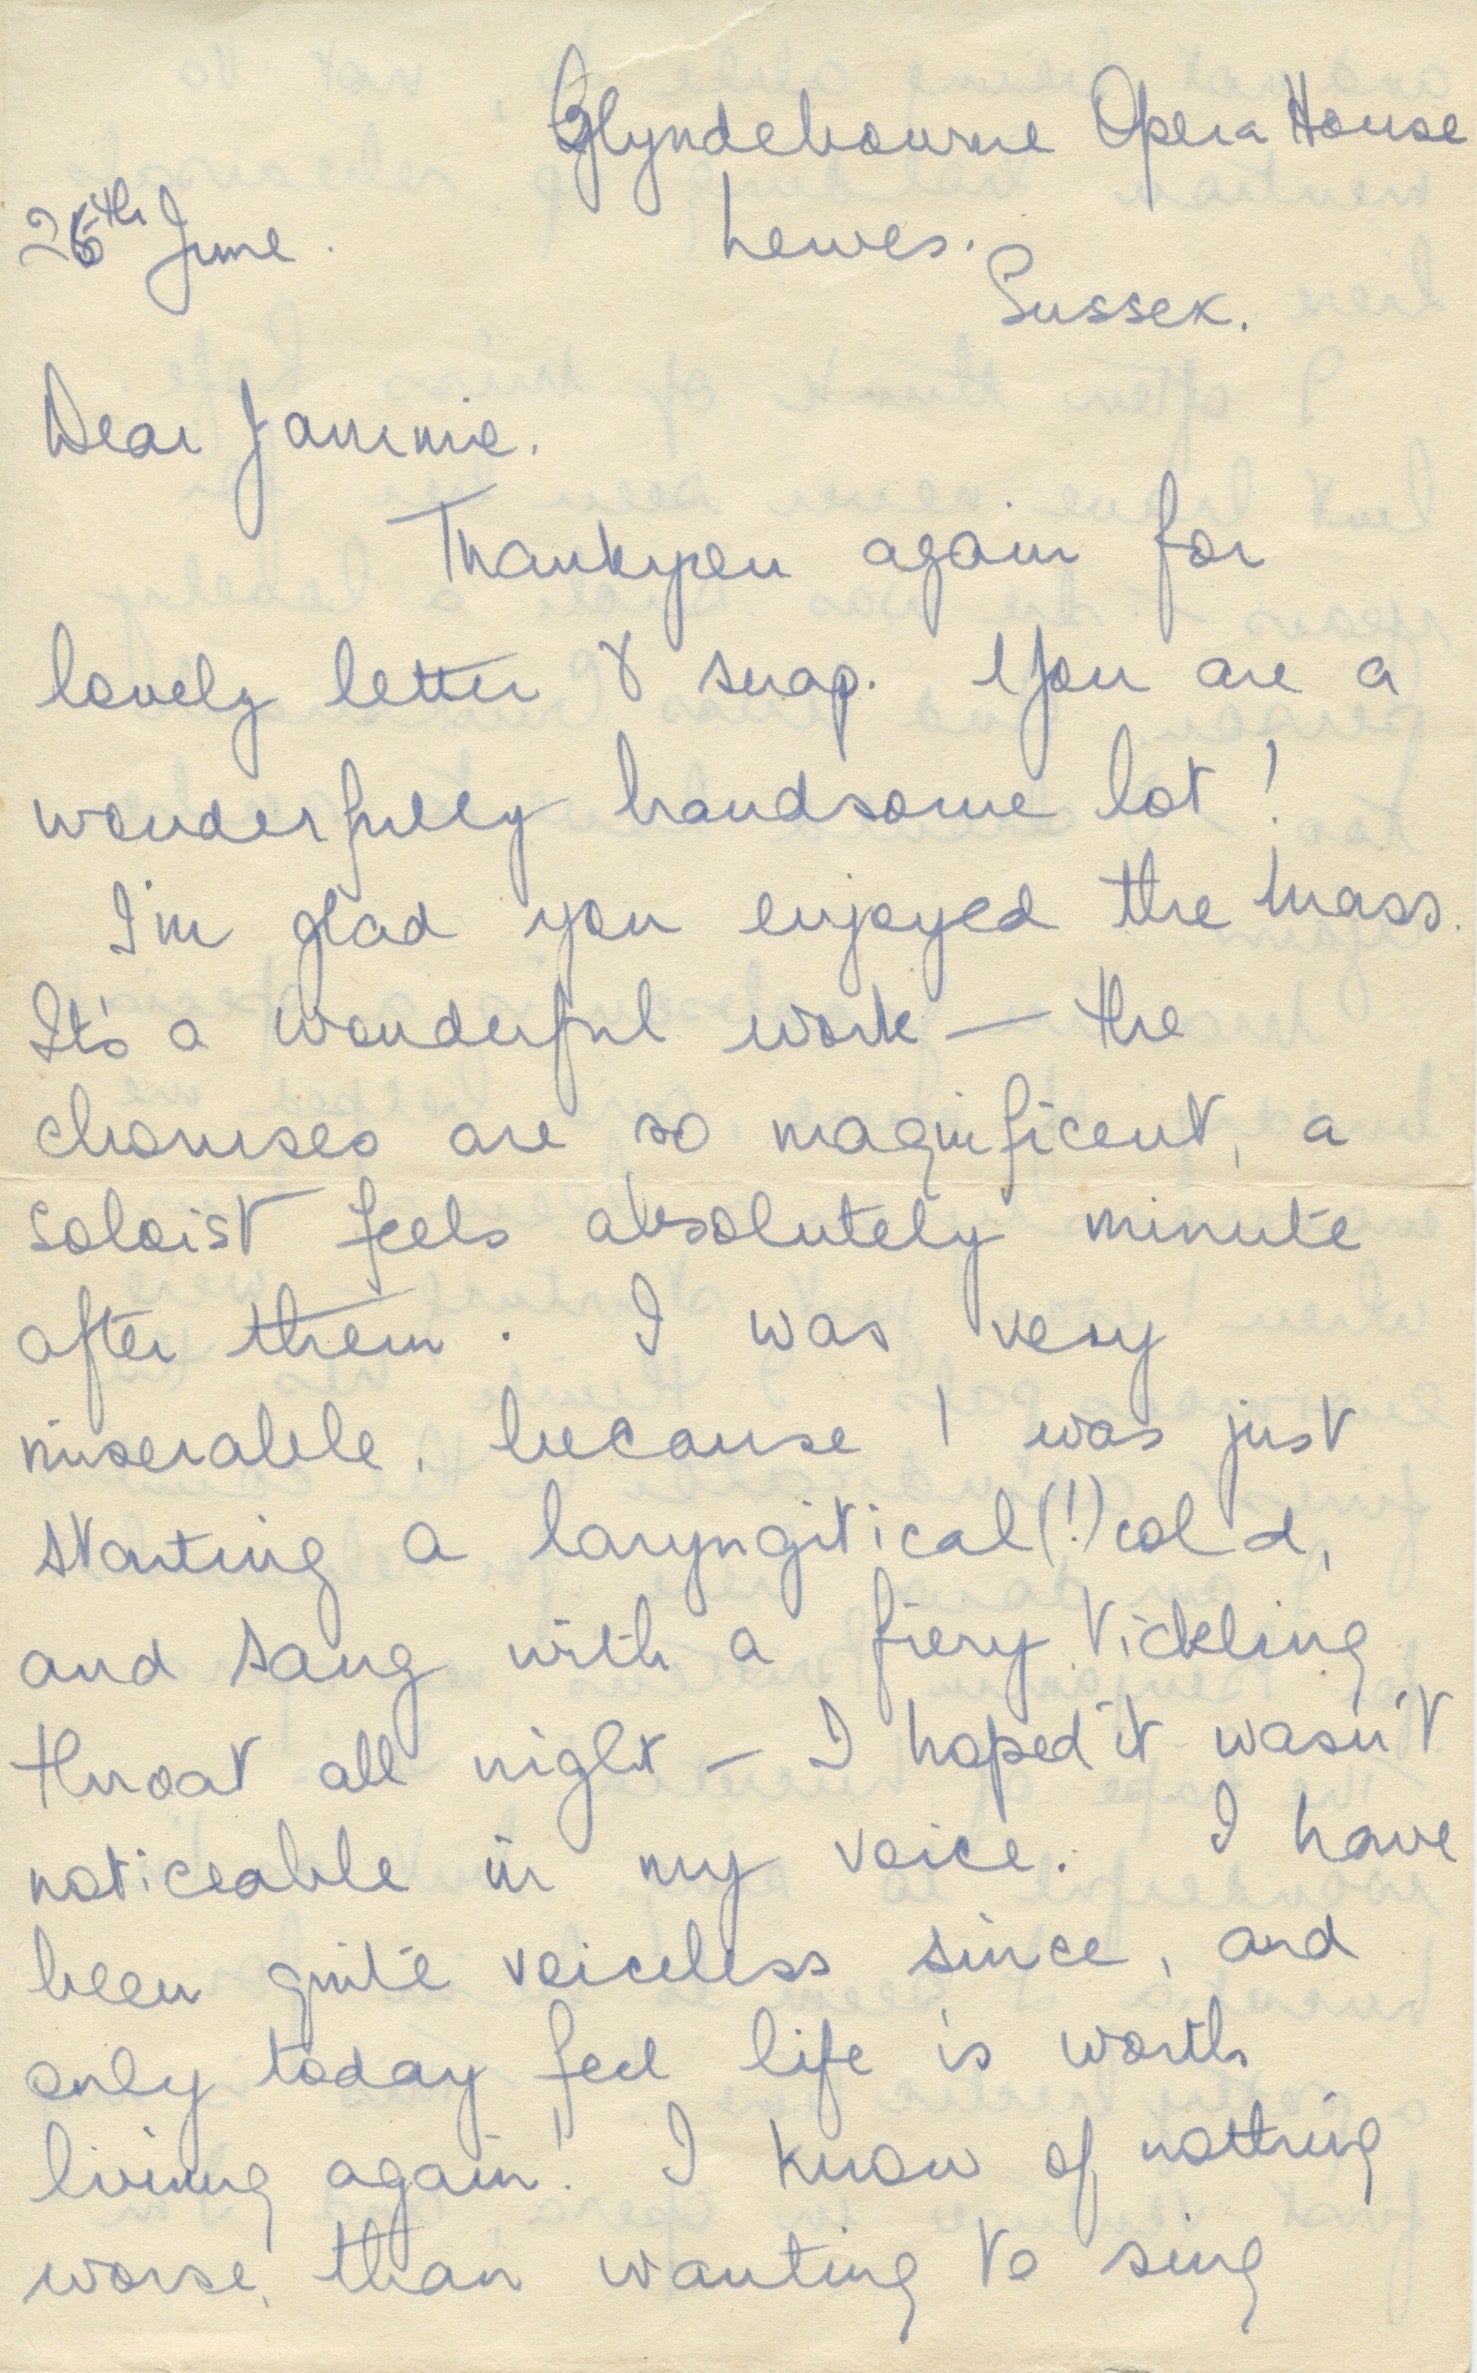 Glyndebourne Opera House
26th June.
Lewes.
Sussex.
Dear Jammie.
Thankyou again for
lovely letter & snap. You are a
wonderfully handsome lot!
I'm glad you enjoyed the Mass.
It's a wonderful work — the
choruses are so magnificent, a
soloist feels absolutely minute
after them. I was very
miserable, because I was just
starting a laryngitical (!) cold,
and sang with a fiery tickling
throat all night — I hoped it wasn't
noticeable in my voice. I have
been quite voiceless since, and
only today feel life is worth
living again! I know of nothing
worse, than wanting to sing